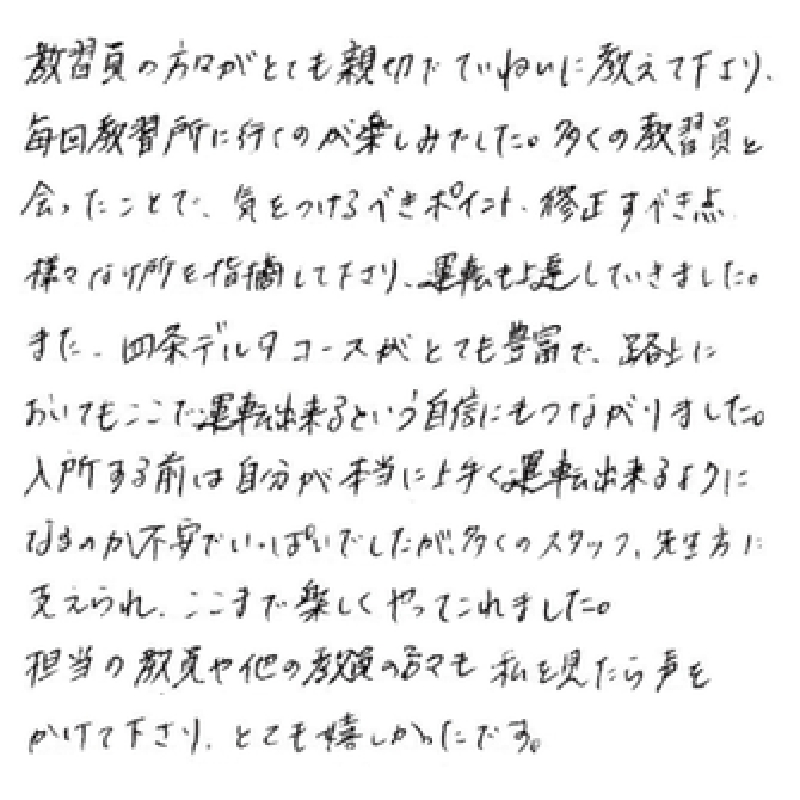 教習員の方々がとても親切でていねいに教えて下さり、
毎回教習所に行くのが楽しみでした。多くの教習員と
会ったことで、気をつけるべきポイント、修正すべき点
様々な箇所を指摘して下さり、運転も上達していきました。
また、四条デルタコースがとても豊富で、路上に
おいてもここで運転出来るという自信にもつながりました。
入所する前は自分が本当に上手く運転出来るように
なるのか不安でいっぱいでしたが、多くのスタッフ、先生方に
支えられ、ここまで楽しくやってこれました。
担当の教員や他の教員の方々も私を見たら声を
かけて下さり、とても嬉しかったです。